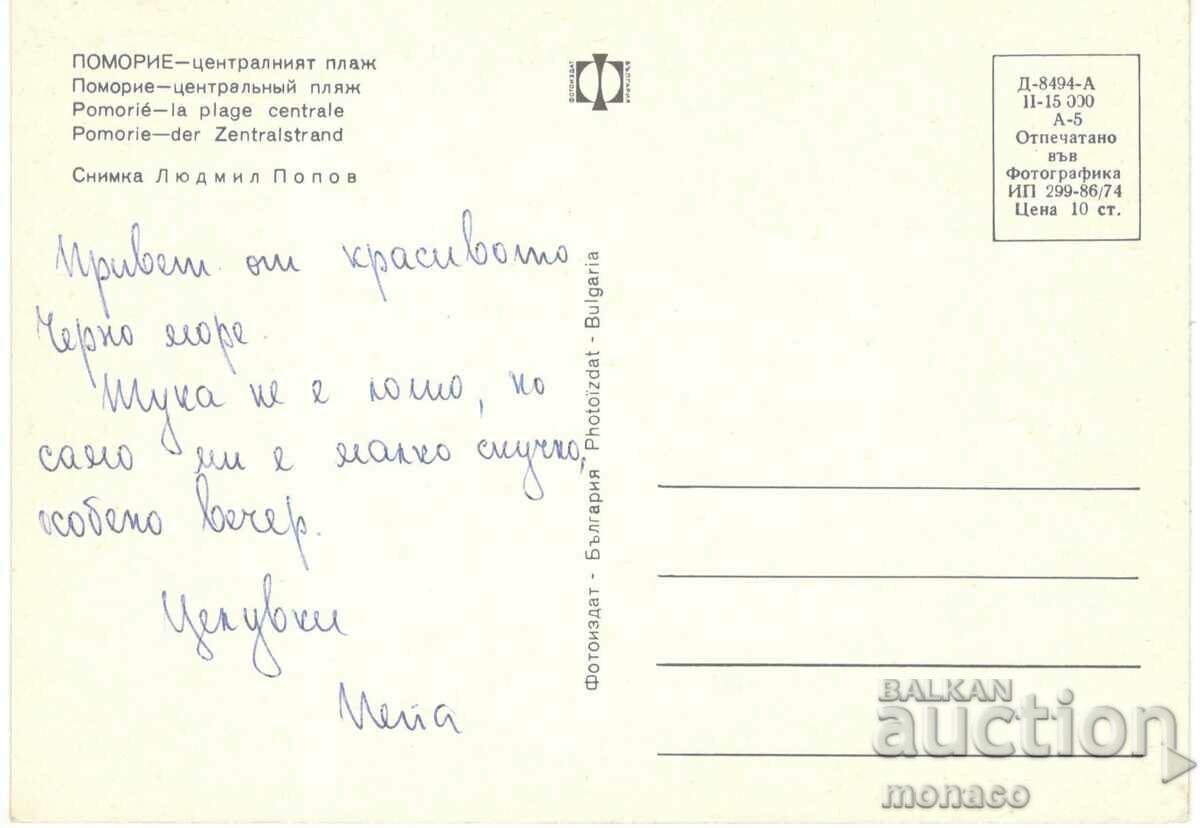 ПОМОРИЕ—централният плаж
Поморие—центральный пляж
Pomorié—la plage centrale
Pomorie—der Zentralstrand
Снимка Людмил Попов
ФОТОИЗДАТ
БЪЛГАРИЯ
Д-8494-А
II-15 000
А-5
Отпечатано
във
Фотографика
ИП 299-86/74
Цена 10 ст.
Привет от красивото
Черно море.
Тука не е лошо, но
само ми е малко скучно,
особено вечер.
Целувки
Фотоиздат - България Photoïzdat - Bulgaria
BALKAN
auction
monaco